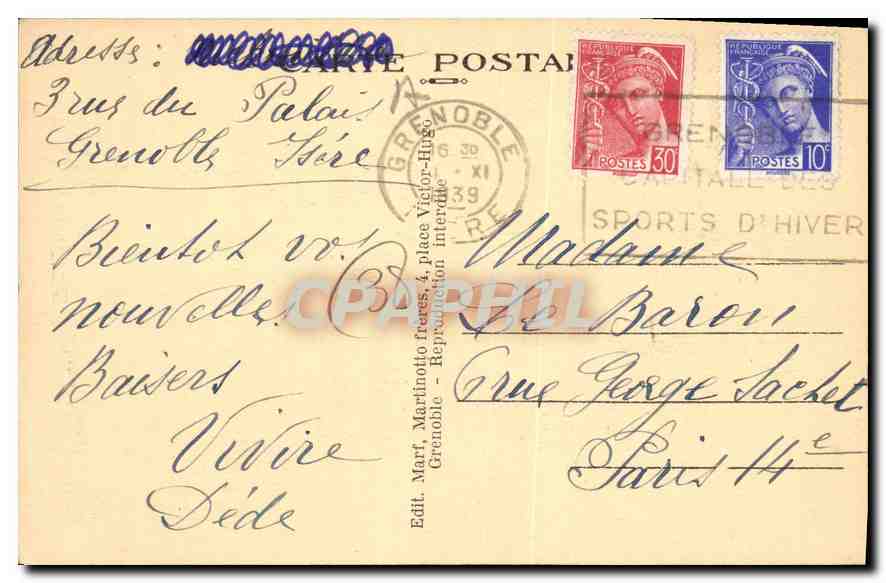 Adresse :
CARTE POSTAL
3 rue du Palais
Grenoble Isère
Bientot vos
nouvelles
Baisers
Vivire
Dédé
3
Edit. Marf, Martinotto frères, 4, place Victor-Hugo
Grenoble - Reproduction interdite
GRENOBLE
16 30
XI
1939
RE
REPUBLIQUE FRANÇAISE
POSTES 30c
REPUBLIQUE FRANÇAISE
POSTES 10c
GRENOBLE
CAPITALE DES
SPORTS D'HIVER
Madame
Le Baron
6 rue George Sachet
Paris 14e
CPAPHIL